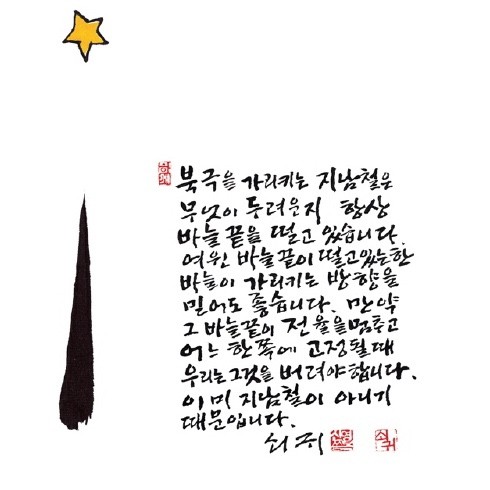 북극을 가리키는 지남철은
무엇이 두려운지 항상
바늘 끝을 떨고 있습니다.
여윈 바늘끝이 떨고있는한
바늘이 가리키는 방향을
믿어도 좋습니다. 만약
그 바늘끝이 전율을멈추고
어느 한쪽에 고정될때
우리는그것을 버려야합니다.
이미 지남철이 아니기
때문입니다.
쇠귀